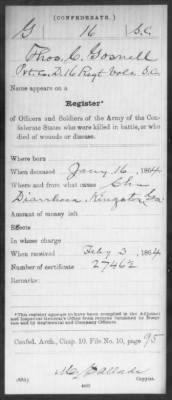 (CONFEDERATE.)
G 16 S.C.
Thos. C. Gosnell
Pvt. Co. D. 16 Regt. Vols. S.C.
Name appears on a
Register*
of Officers and Soldiers of the Army of the Confederate States who were killed in battle, or who died of wounds or disease.
Where born
When deceased Jany 16, 1864
Where and from what cause Chr
Diarrhoea, Kingston, Ga
Amount of money left
Effects
In whose charge
When received Feby 3, 1864
Number of certificate 27462
Remarks:
*This register appears to have been compiled in the Adjutant and Inspector General's Office from returns furnished by Hospitals and by Regimental and Company Officers.
Confed. Arch., Chap. 10, File No. 10, page 95
Copyist.